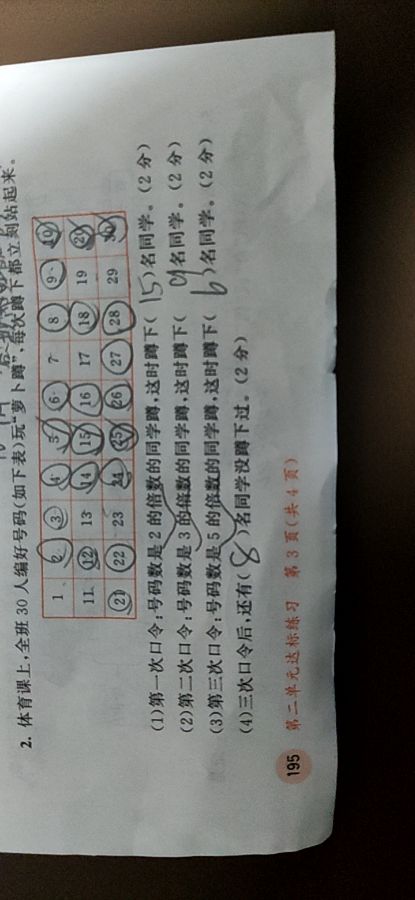 2. 体育课上,全班30人编好号码(如下表)玩“萝卜蹲”,每次蹲下都立刻站起来。
1 2 3 4 5 6 7 8 9 10
11 12 13 14 15 16 17 18 19 20
21 22 23 24 25 26 27 28 29 30
(1)第一次口令:号码数是2的倍数的同学蹲,这时蹲下(15)名同学。(2分)
(2)第二次口令:号码数是3的倍数的同学蹲,这时蹲下( )名同学。(2分)
(3)第三次口令:号码数是5的倍数的同学蹲,这时蹲下(6)名同学。(2分)
(4)三次口令后,还有(8)名同学没蹲下过。(2分)
195 第二单元达标练习 第3页(共4页)